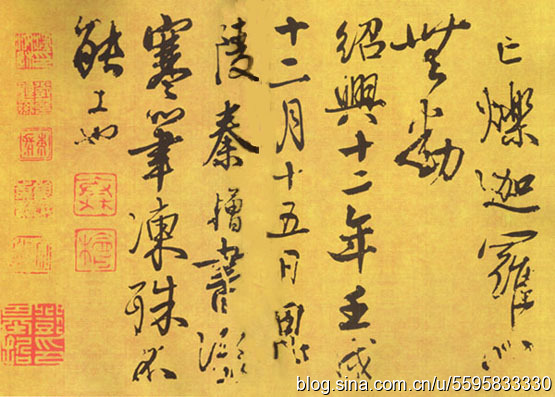 亡爍迦羅心
無動
紹興十二年壬戌
十二月十五日
陵秦檜書
寒筆凍殊不
能工也
blog.sina.com.cn/u/5595833330